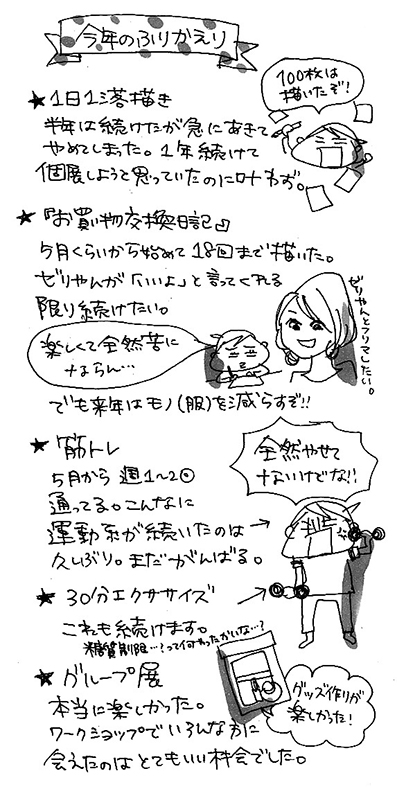 今年のふりかえり
100枚は
描いたぞ!
★1日1落描き
半年は続けたが急にあきて
やめてしまった。1年続けて
個展しようと思っていたのに叶わず。
★『お買い物交換日記』
5月くらいから始めて18回まで描いた。
ゼリやんが「いいよ」と言ってくれる
限り続けたい。
ゼリやんとフリマしたい。
楽しくて全然苦に
ならん…
でも来年はモノ(服)を減らすぞ!!
★筋トレ
5月から週1~2回
通ってる。こんなに
運動系が続いたのは
久しぶり。まだがんばる。
全然やせて
ないけどな!!
★30分エクササイズ
これも続けます。
糖質制限…?って何やったかいな…?
★グループ展
本当に楽しかった。
ワークショップでいろんな方に
会えたのはとてもいい機会でした。
グッズ作りが
楽しかった!